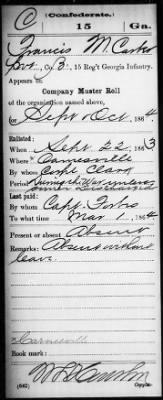 C
(Confederate.)
15 Ga.
Francis M. Carter
Pvt., Co. B, 15 Reg't Georgia Infantry.
Appears on
Company Muster Roll
of the organization named above,
for Sept & Oct, 1864
Enlisted:
When Sept 22, 1863
Where Carnesville
By whom Capt.
Period
Last paid:
By whom Capt.
To what time Mar 1, 1864
Present or absent Absent
Remarks: Absent without
leave
Carnesville
Book mark:
(642) Copyist.